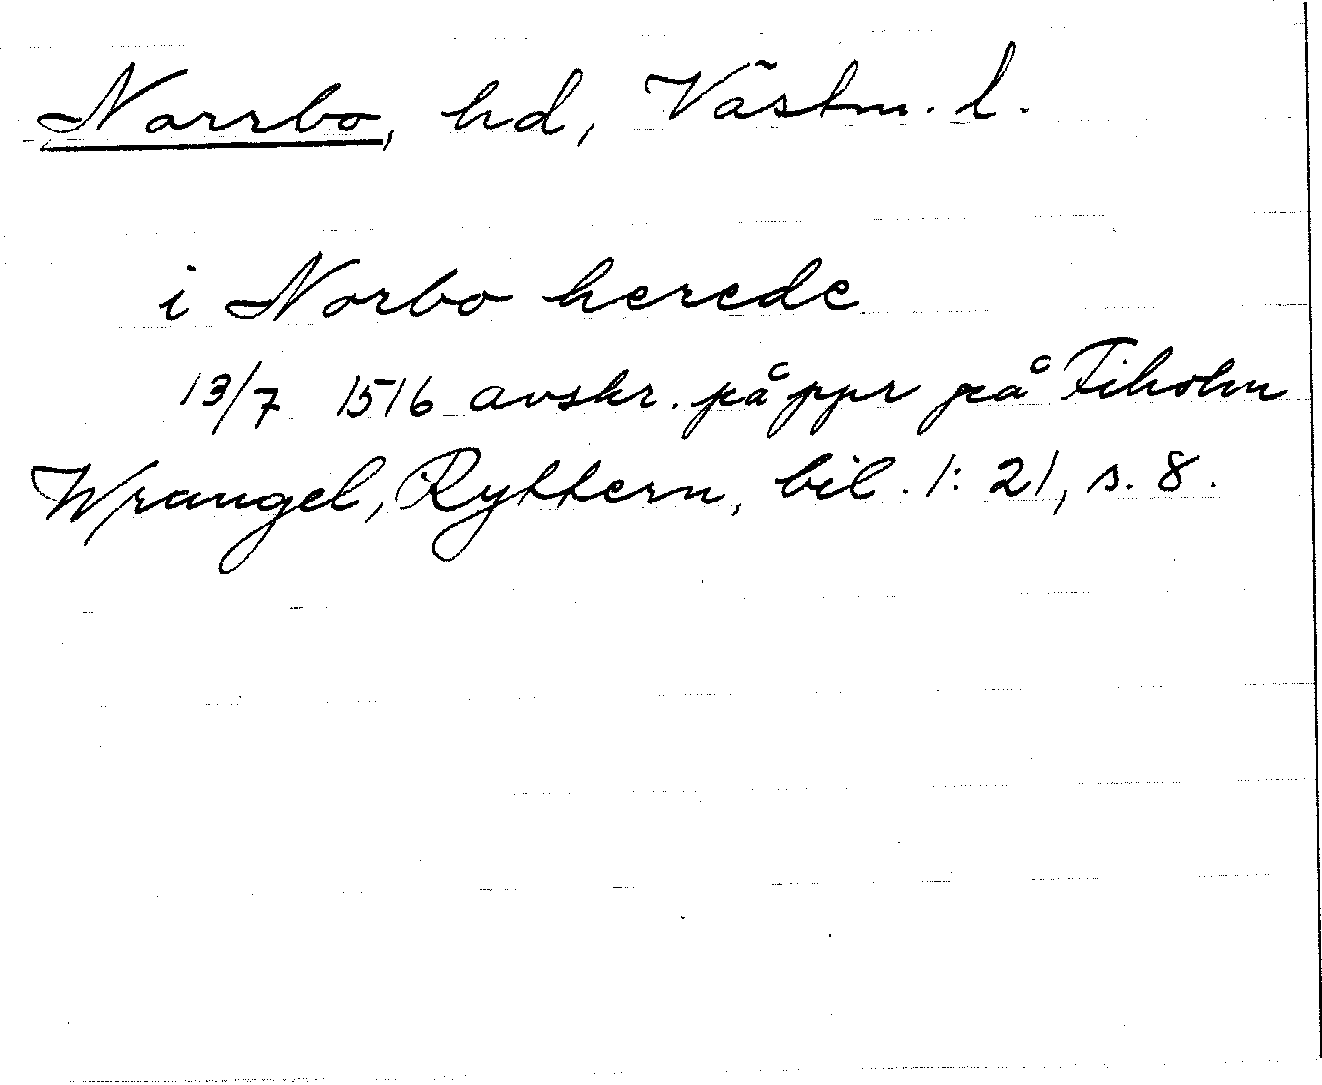 Norrbo, hd, Västm. l.
i Norbo herede
13/7 1516 avskr. på ppr på Fiholm
Wrangel, Ryttern, bil. 1: 21, s. 8.